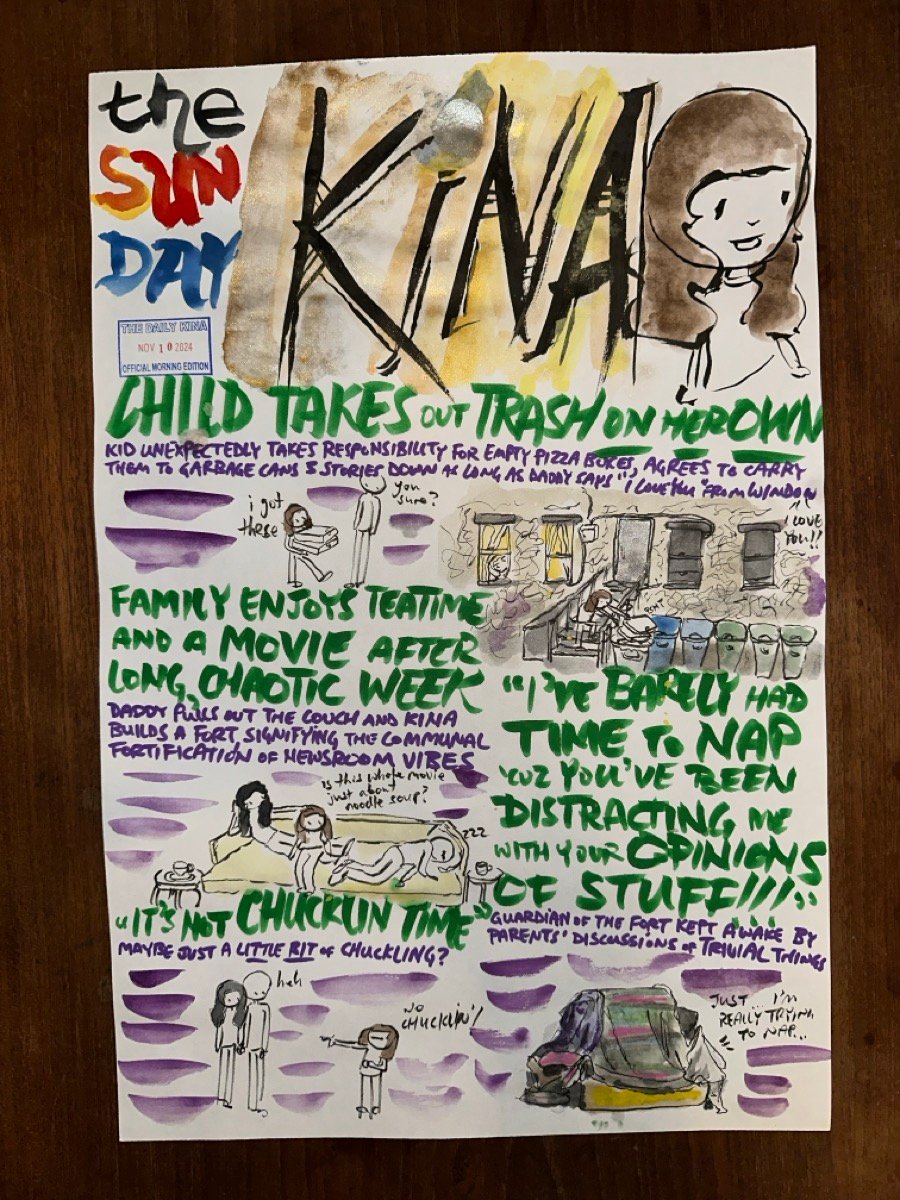 the
SUN
DAY
KiNA
THE DAILY KINA
NOV 10 2024
OFFICIAL MORNING EDITION
CHILD TAKES OUT TRASH ON HER OWN
KID UNEXPECTEDLY TAKES RESPONSIBILITY FOR EMPTY PIZZA BOXES, AGREES TO CARRY
THEM TO GARBAGE CANS 3 STORIES DOWN AS LONG AS DADDY SAYS "I LOVE YOU" FROM WINDOW
i got
these
you
sure?
I LOVE
YOU!!
FAMILY ENJOYS TEATIME
AND A MOVIE AFTER
LONG, CHAOTIC WEEK
DADDY PULLS OUT THE COUCH AND KINA
BUILDS A FORT SIGNIFYING THE COMMUNAL
FORTIFICATION OF NEWSROOM VIBES
is this whole movie
just about
noodle soup?
zzz
"I'VE BARELY HAD
TIME TO NAP
'CUZ YOU'VE BEEN
DISTRACTING ME
WITH YOUR OPINIONS
OF STUFF!!!!"
GUARDIAN OF THE FORT KEPT AWAKE BY
PARENTS' DISCUSSIONS OF TRIVIAL THINGS
JUST... I'M
REALLY TRYING
TO NAP...
"IT'S NOT CHUCKLIN TIME"
MAYBE JUST A LITTLE BIT OF CHUCKLING?
heh
NO
CHUCKLIN'!